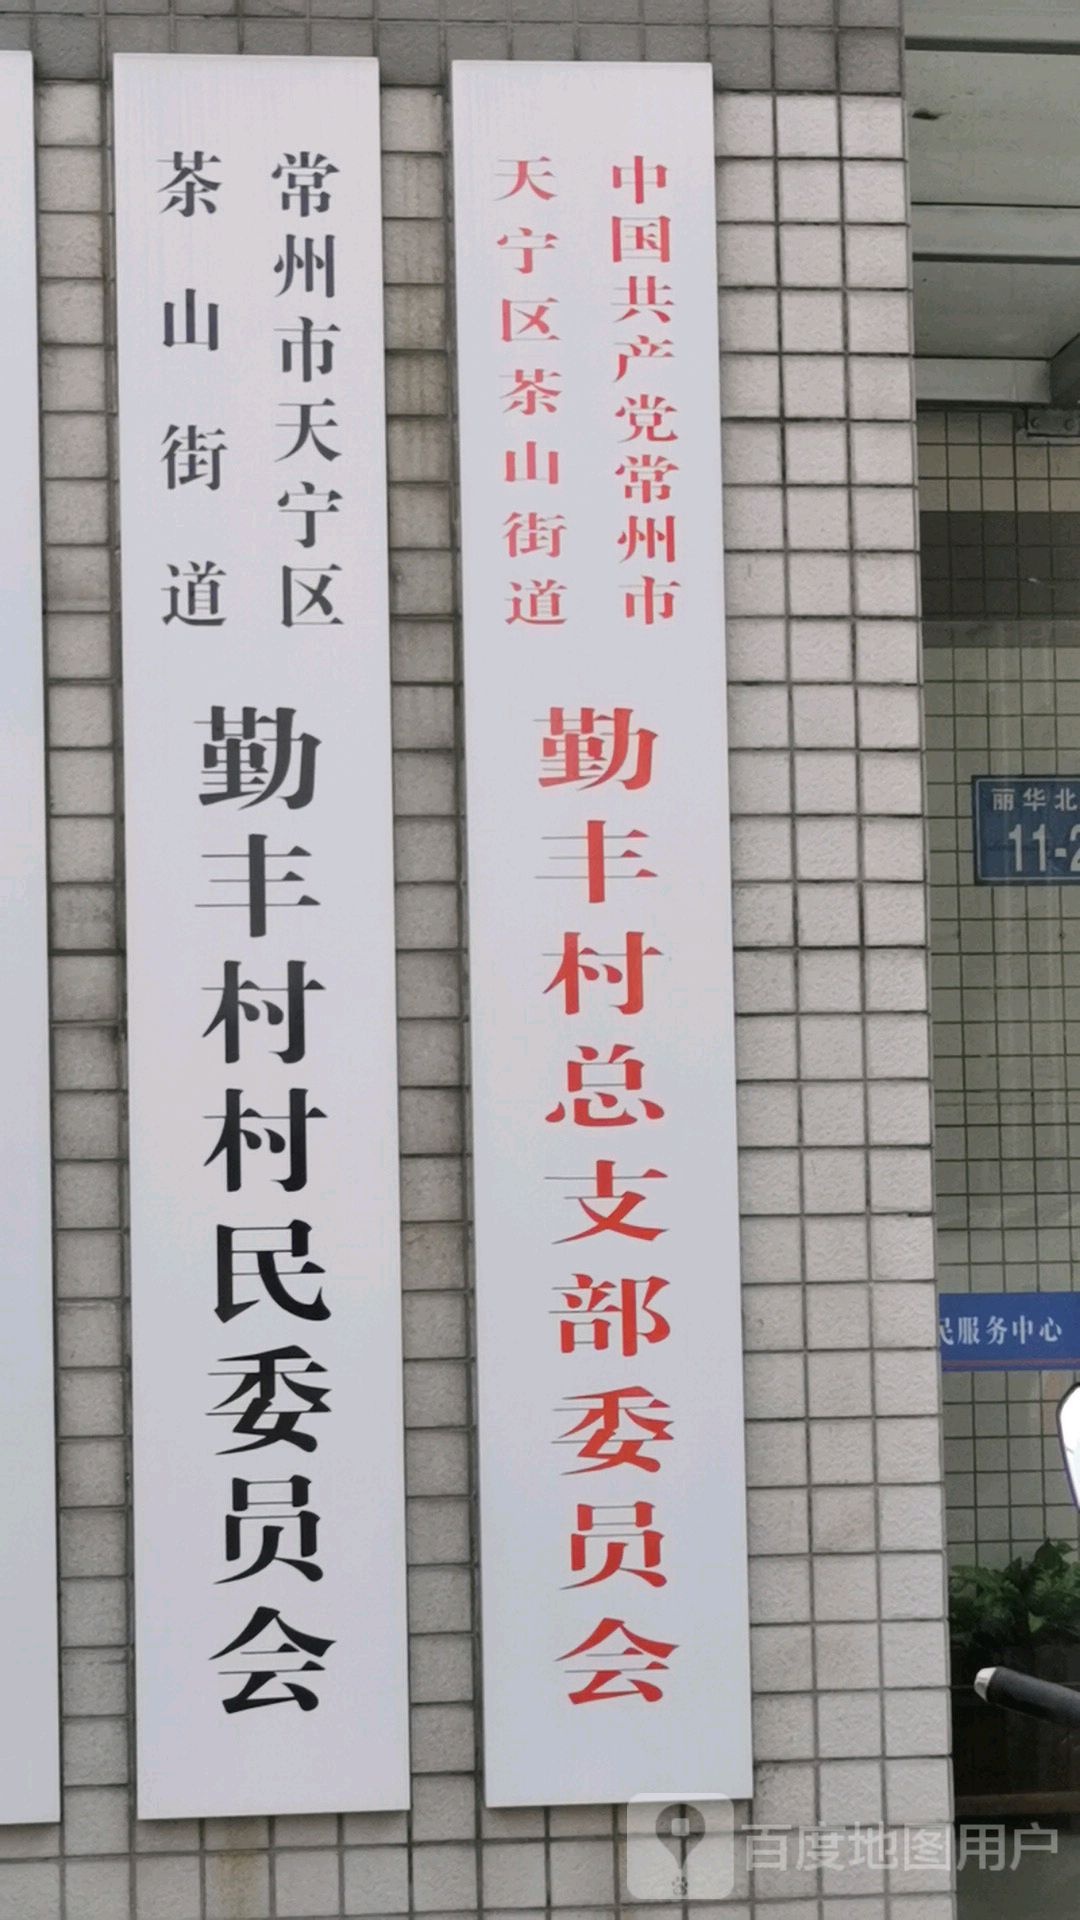 中国共产党常州市
天宁区茶山街道
勤丰村总支部委员会
常州市天宁区
茶山街道
勤丰村村民委员会
丽华北
11-2
民服务中心
百度地图用户